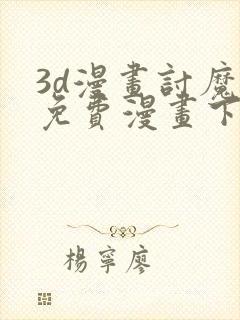 3d漫畫討魔
免費漫畫下
楊寧廖